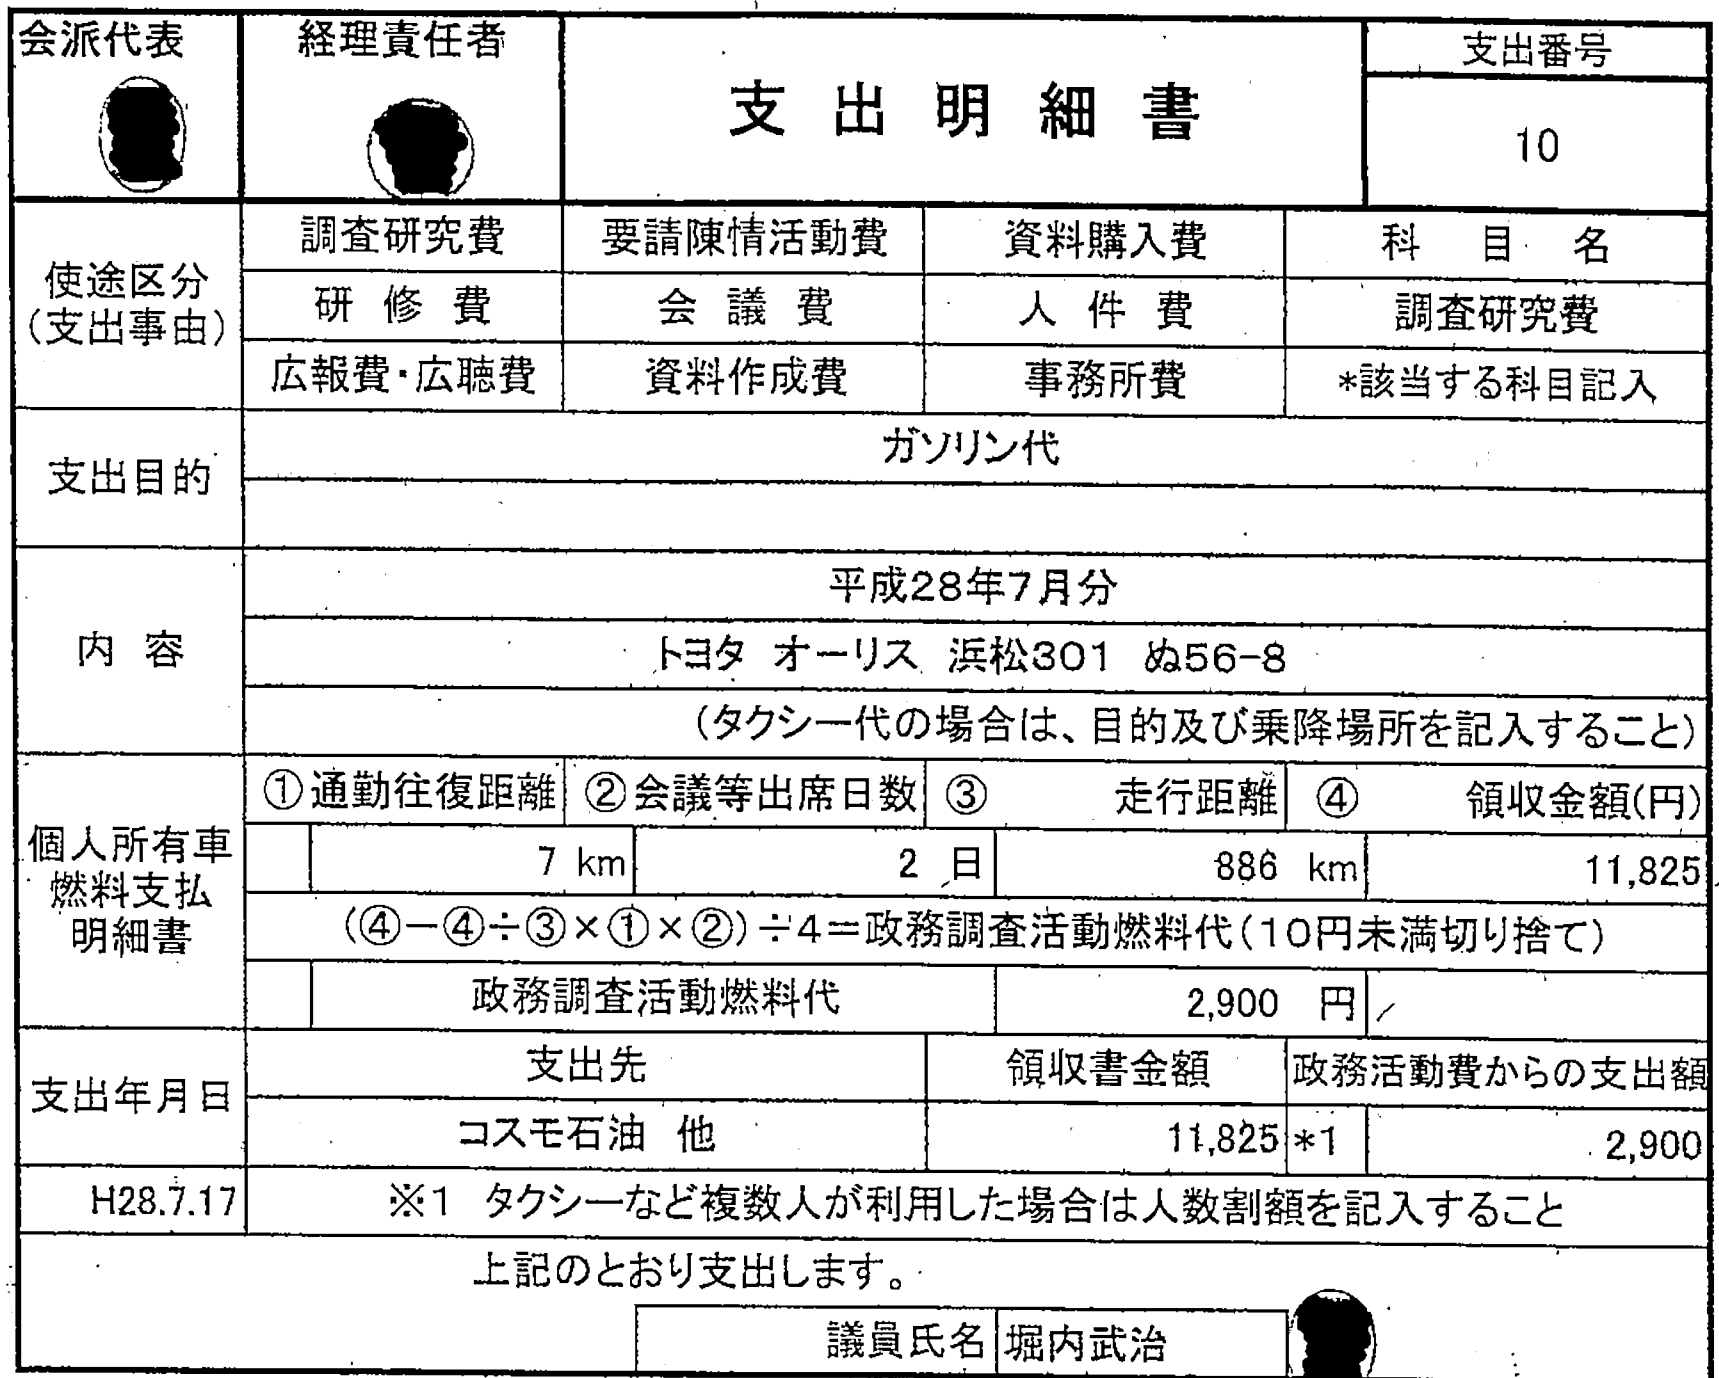 会派代表 経理責任者 支出明細書 支出番号
10
使途区分
(支出事由)
調査研究費 要請陳情活動費 資料購入費 科目名
研修費 会議費 人件費 調査研究費
広報費・広聴費 資料作成費 事務所費 *該当する科目記入
支出目的
ガソリン代
内容
平成28年7月分
トヨタ オーリス 浜松301 ぬ56-8
(タクシー代の場合は、目的及び乗降場所を記入すること)
個人所有車
燃料支払
明細書
①通勤往復距離 ②会議等出席日数 ③ 走行距離 ④ 領収金額(円)
7 km 2 日 886 km 11,825
(④-④÷③×①×②)÷4=政務調査活動燃料代(10円未満切り捨て)
政務調査活動燃料代 2,900 円
支出年月日 支出先 領収書金額 政務活動費からの支出額
コスモ石油 他 11,825 *1 2,900
H28.7.17 ※1 タクシーなど複数人が利用した場合は人数割額を記入すること
上記のとおり支出します。
議員氏名 堀内武治